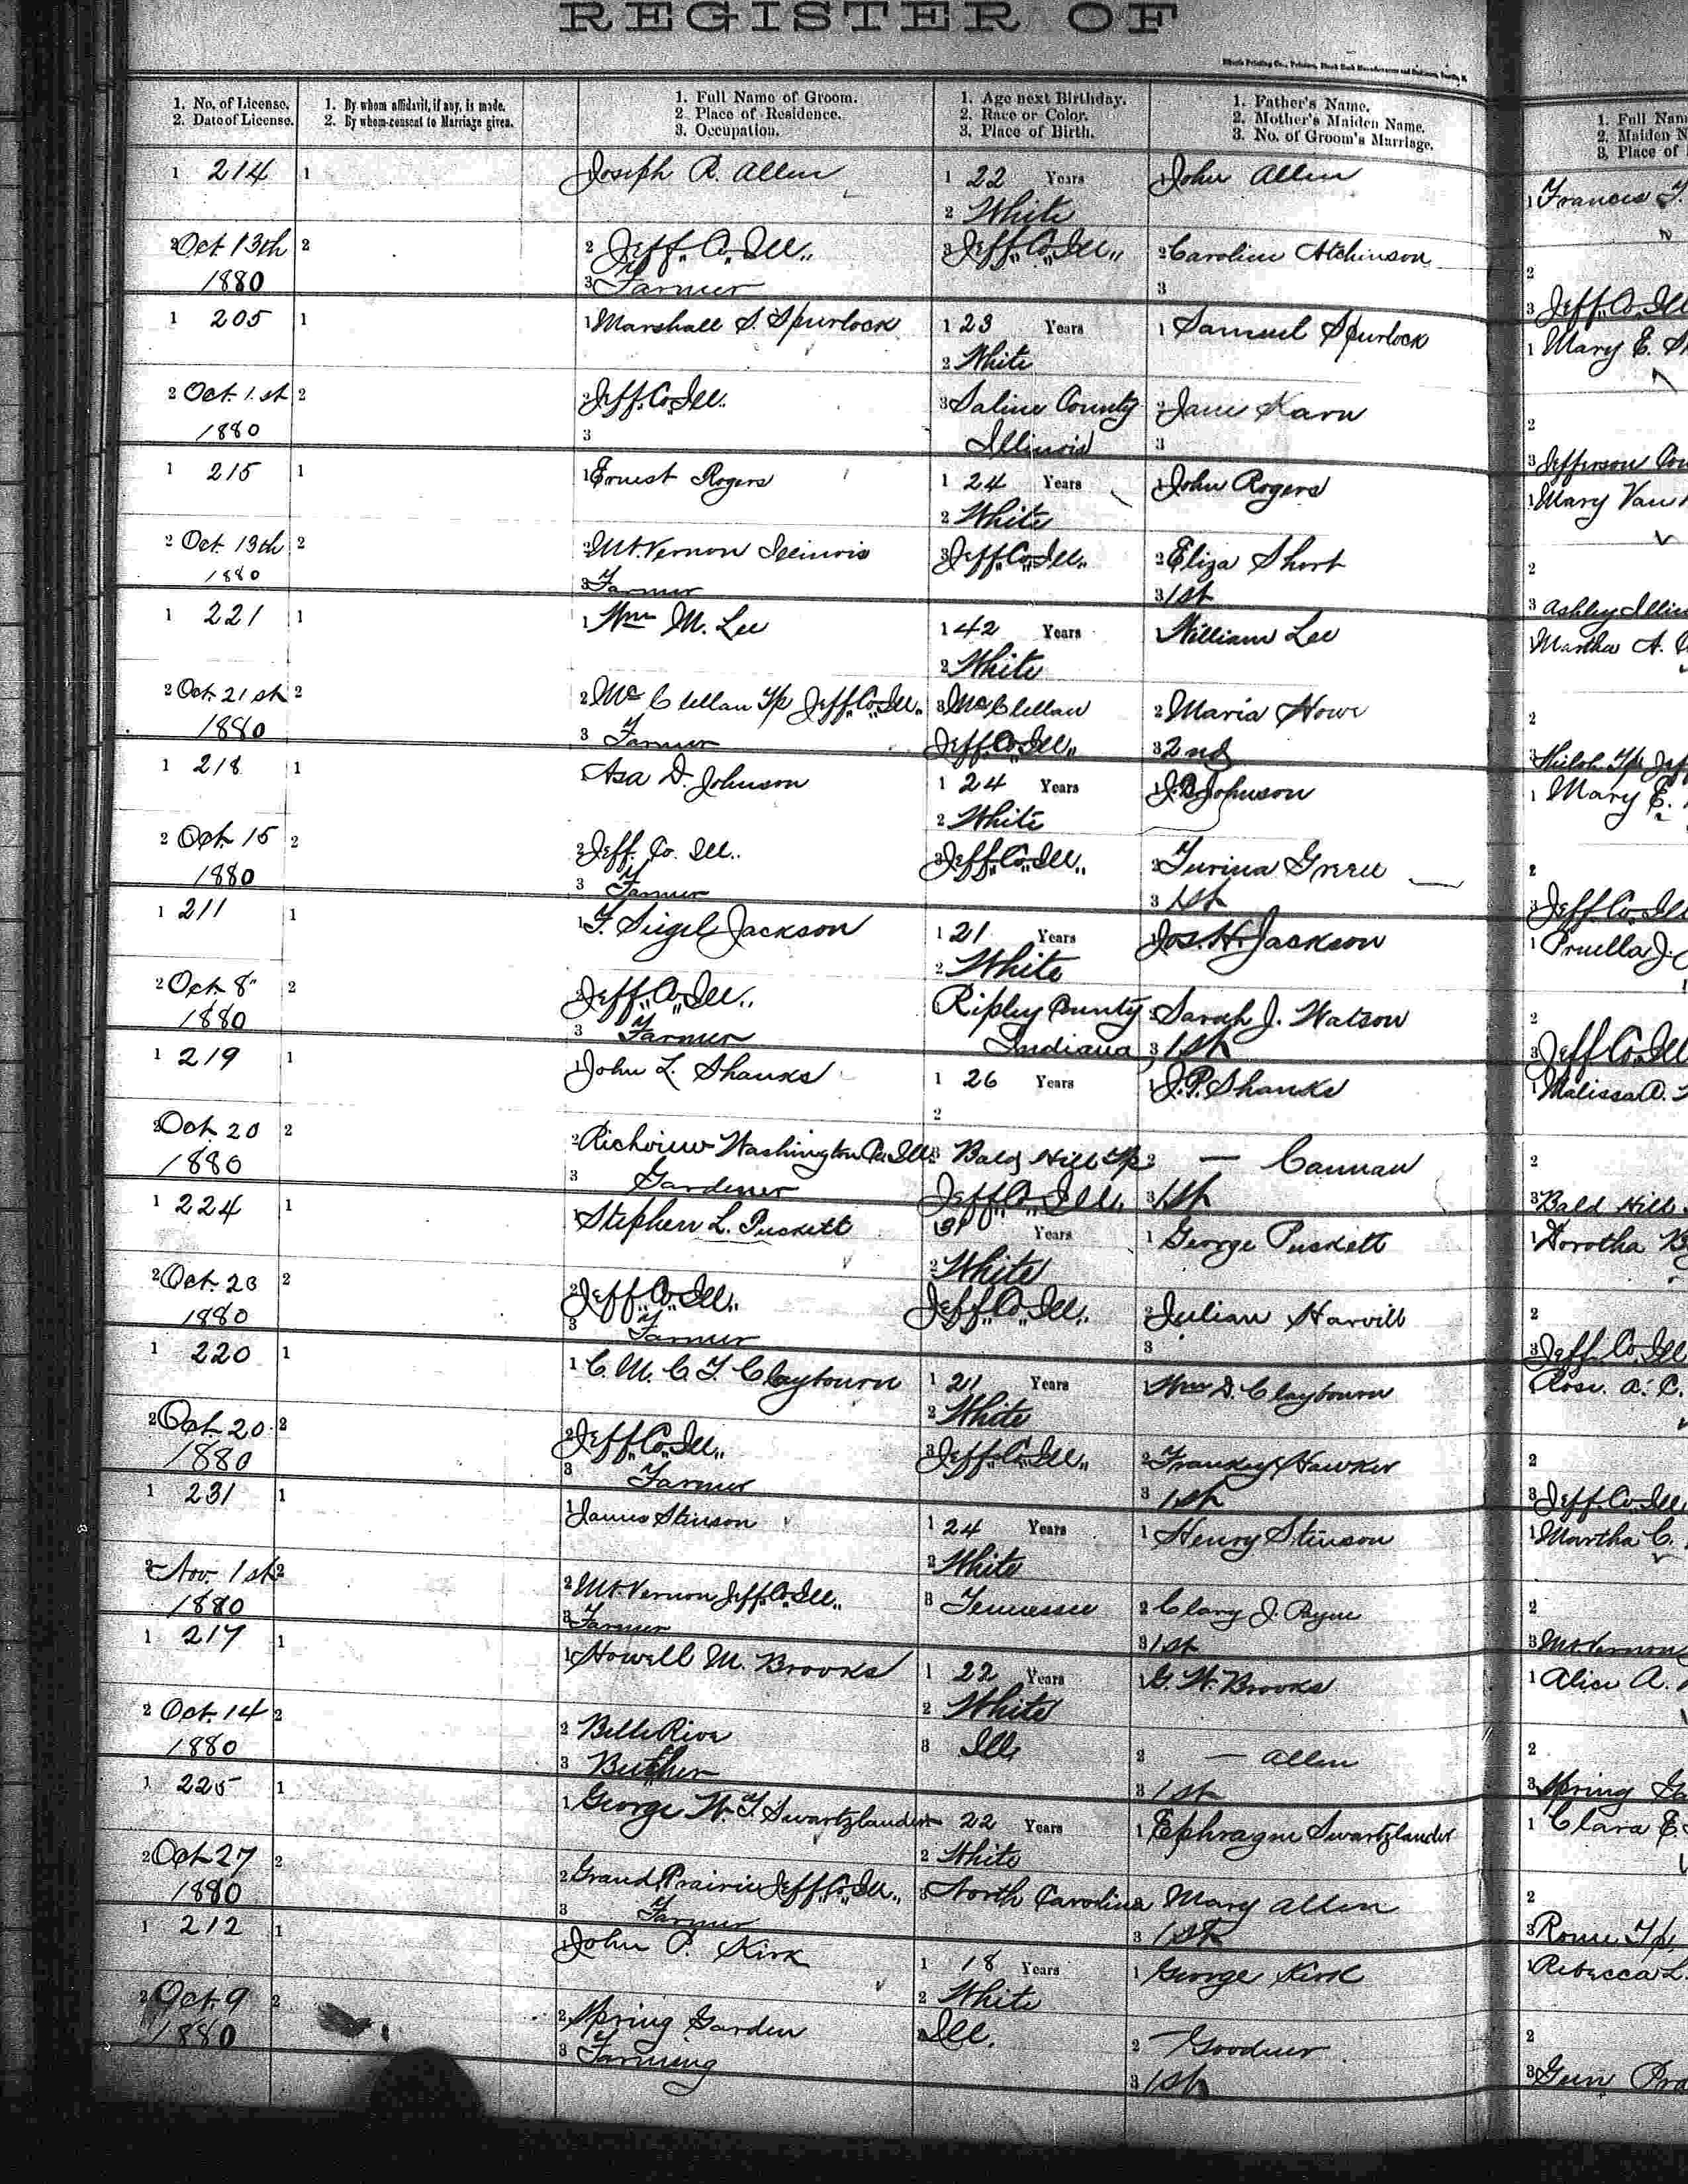 REGISTER OF
1. No. of License.
2. Date of License.
1. By whom affidavit, if any, is made.
2. By whom consent to Marriage given.
1. Full Name of Groom.
2. Place of Residence.
3. Occupation.
1. Age next Birthday.
2. Race or Color.
3. Place of Birth.
1. Father's Name.
2. Mother's Maiden Name.
3. No. of Groom's Marriage.
1. Full Nam
2. Maiden N
3. Place of
1 214 1 Joseph R. Allen 1 22 Years 1 John Allen 1 Frances
2 White
2 Oct 13th 2 2 Jeff. Co. Ill. 3 Jeff. Co. Ill. 2 Caroline Atchinson 2
1880 3 Farmer 3 3 Jeff. Co. Ill
1 205 1 1 Marshall S. Spurlock 1 23 Years 1 Samuel Spurlock 1 Mary E.
2 White
2 Oct. 1st 2 2 Jeff. Co. Ill. 3 Saline County 2 Jane Karn 2
1880 3 Illinois 3 3 Jefferson Cou
1 215 1 1 Ernest Rogers 1 24 Years 1 John Rogers 1 Mary Van
2 White
2 Oct. 13th 2 2 Mt. Vernon Illinois 3 Jeff. Co. Ill. 2 Eliza Short 2
1880 3 Farmer 3 1st 3 Ashley Illin
1 221 1 1 Wm M. Lee 1 42 Years 1 William Lee Martha A.
2 White
2 Oct. 21st 2 2 McClellan Tp Jeff. Co. Ill. 3 McClellan 2 Maria Howe 2
1880 3 Farmer Jeff. Co. Ill. 3 2nd 3 Shiloh Tp Jeff
1 218 1 1 Asa D. Johnson 1 24 Years 1 J. Johnson 1 Mary E.
2 White
2 Oct. 15 2 2 Jeff. Co. Ill. 3 Jeff. Co. Ill. 2 Green 2
1880 3 Farmer 3 1st 3 Jeff. Co. Ill
1 211 1 1 F. Seigel Jackson 1 21 Years 1 Jos. H. Jackson 1 Pruella J.
2 White
2 Oct. 8" 2 2 Jeff. Co. Ill. Ripley County 2 Sarah J. Watson 2
1880 3 Farmer Indiana 3 1st 3 Jeff Co. Ill
1 219 1 1 John L. Shanks 1 26 Years 1 J. P. Shanks 1 Malissa A.
2
2 Oct. 20 2 2 Richview Washington Co. Ill. 3 Bald Hill Tp 2 — Cannan 2
1880 3 Gardener Jeff. Co. Ill. 3 1st 3 Bald Hill
1 224 1 1 Stephen L. Puckett 1 31 Years 1 George Puckett 1 Dorotha
2 White
2 Oct. 23 2 2 Jeff. Co. Ill. Jeff. Co. Ill. 2 Julian Harvill 2
1880 3 Farmer 3 3 Jeff. Co. Ill
1 220 1 1 C. M. C. F. Claybourn 1 21 Years 1 Wm D. Claybourn Rose. A. C.
2 White
2 Oct. 20 2 2 Jeff. Co. Ill. 3 Jeff. Co. Ill. 2 Frankey Hawker 2
1880 3 Farmer 3 1st 3 Jeff. Co. Ill.
1 231 1 1 James Stinson 1 24 Years 1 Henry Stinson 1 Martha C.
2 White
2 Nov. 1st 2 2 Mt. Vernon Jeff. Co. Ill. 3 Tennessee 2 Clary J. Payne 2
1880 3 Farmer 3 1st 3 Mt. Vernon
1 217 1 1 Howell M. Brooks 1 22 Years 1 G. W. Brooks 1 Alice A.
2 White
2 Oct. 14 2 2 Belle Rive 3 Ill. 2 — Allen 2
1880 3 Butcher 3 1st 3 Spring Ga
1 225 1 1 George W. F. Swartzlander 22 Years 1 Ephragm Swartzlander 1 Clara E.
2 White
2 Oct 27 2 2 Grand Prairie Jeff. Co. Ill. 3 North Carolina Mary Allen 2
1880 3 Farmer 3 1st 3 Rome Tp.
1 212 1 1 John P. Kirk 1 18 Years 1 George Kirk 1 Rebecca L.
2 White
2 Oct. 9 2 2 Spring Garden 3 Ill. 2 Goodner 2
1880 3 Farming 3 1st 3 Gun Pra